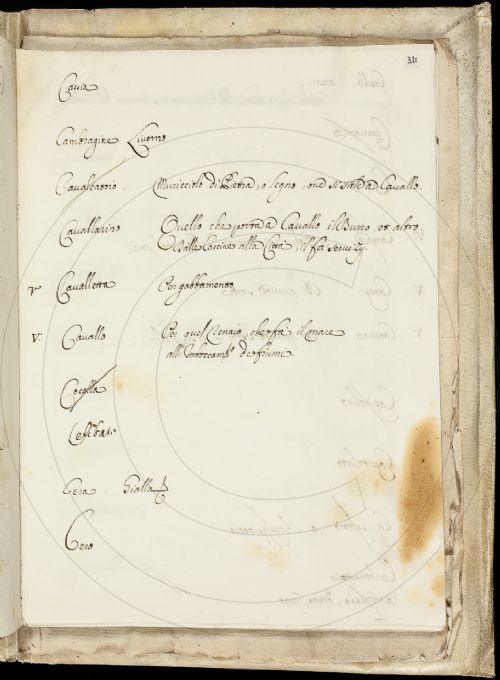 321
Cavia
Cambragine Livorno
Cavalcatorio. Muricciolo di Pietra, o legno, ove si Cavallo.
Cavallarino Quello che porta a Cavallo il Burro et altro
Dalle Cascine alla Città, il fa servizj.
V Cavalletta Per gabbamento
V. Cavallo Per quel Renaio, che fa il mare
all' de fiumi
Cocolla
Cera Gialla
Cero